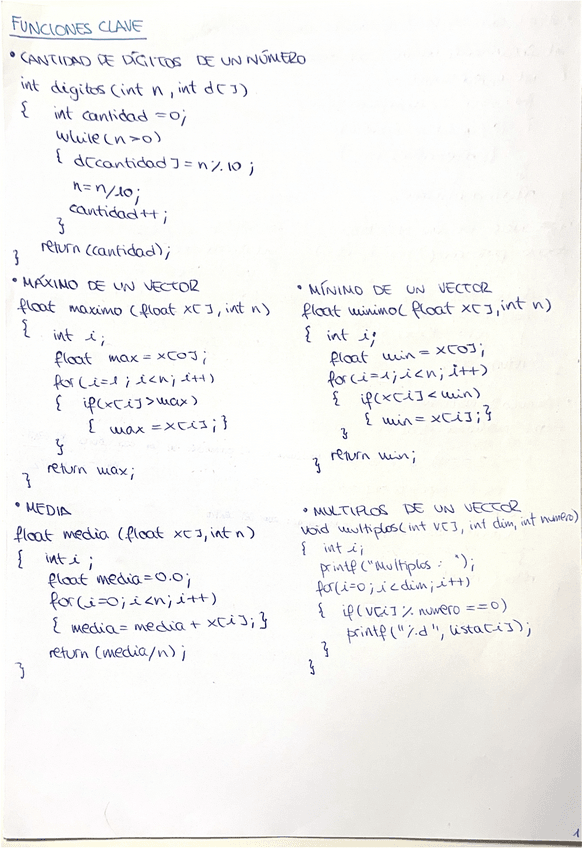 FUNCIONES CLAVE
• CANTIDAD DE DÍGITOS DE UN NÚMERO
int digitos (int n, int d[])
{ int cantidad = 0;
while (n>0)
{ d[cantidad] = n % 10;
n = n/10;
cantidad++;
}
return (cantidad);
}
• MÁXIMO DE UN VECTOR
float maximo (float x[], int n)
{ int i;
float max = x[0];
for (i=1; i<n; i++)
{ if(x[i]>max)
{ max = x[i]; }
}
return max;
}
• MÍNIMO DE UN VECTOR
float minimo( float x[], int n)
{ int i;
float min = x[0];
for (i=1; i<n; i++)
{ if(x[i]<min)
{ min = x[i]; }
}
return min;
}
• MEDIA
float media (float x[], int n)
{ int i;
float media=0.0;
for (i=0; i<n; i++)
{ media = media + x[i]; }
return (media/n);
}
• MULTIPLOS DE UN VECTOR
void multiplos( int v[], int dim, int numero)
{ int i;
printf ("Multiplos : ");
for(i=0; i<dim; i++)
{ if (v[i] % numero ==0)
printf ("%d", lista[i]);
}
}
1